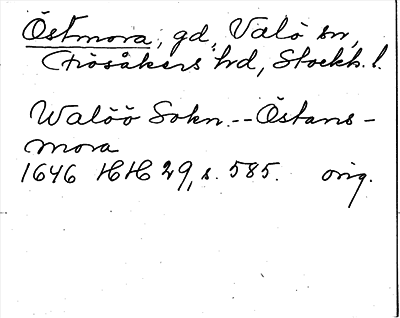 Östmora, gd, Valö sn,
Frösåkers hd, Stockh. l.
Walöö Sokn. -- Östans-
mora
1646 HH 29, s. 585. orig.